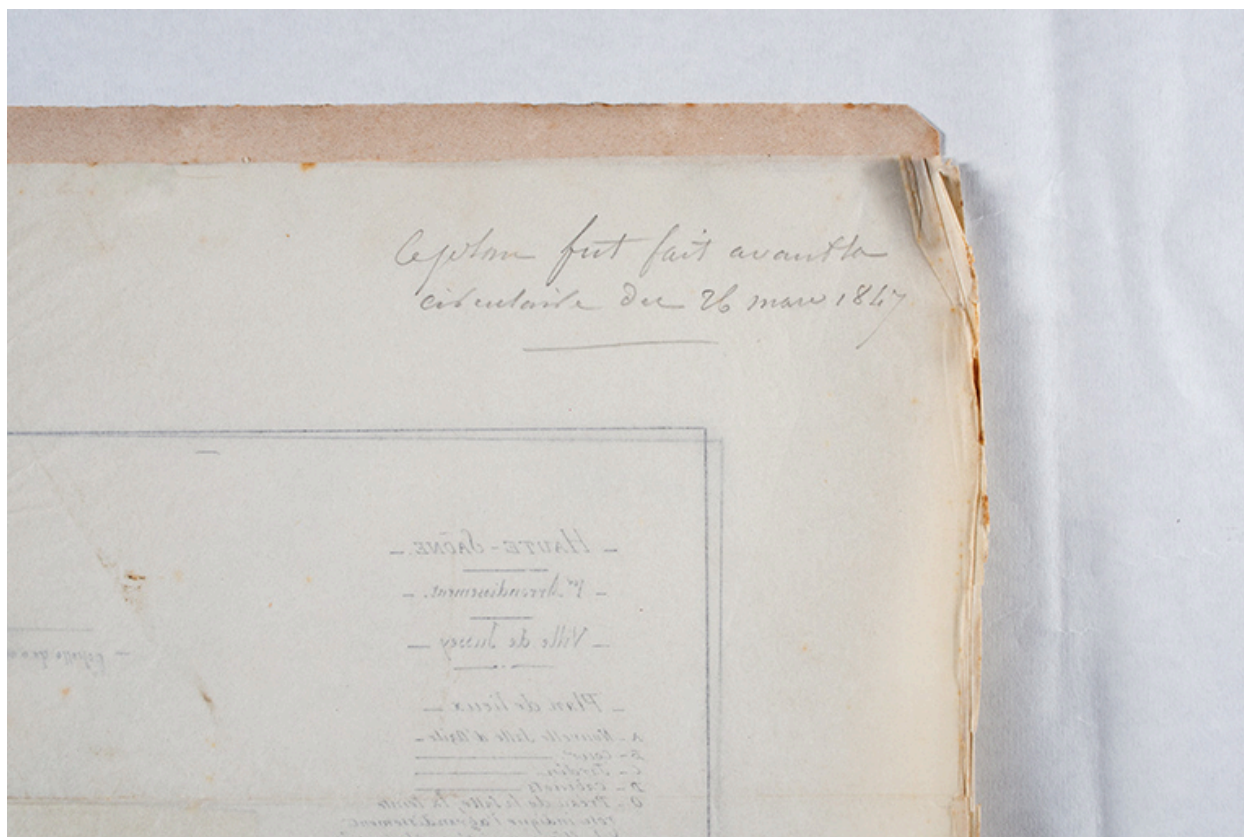 Ce plan fut fait avant la
circulaire du 26 mars 1847
— HAUTE-SAÔNE. —
— 1er Arrondissement. —
— Ville de Jussey —
— Plan de lieux —
A — Nouvelle Salle d'Asile —
B — Cour
C — Jardin
D — Cabinets
O — Préau de la Salle, la teinte
rose indique l'agrandissement.